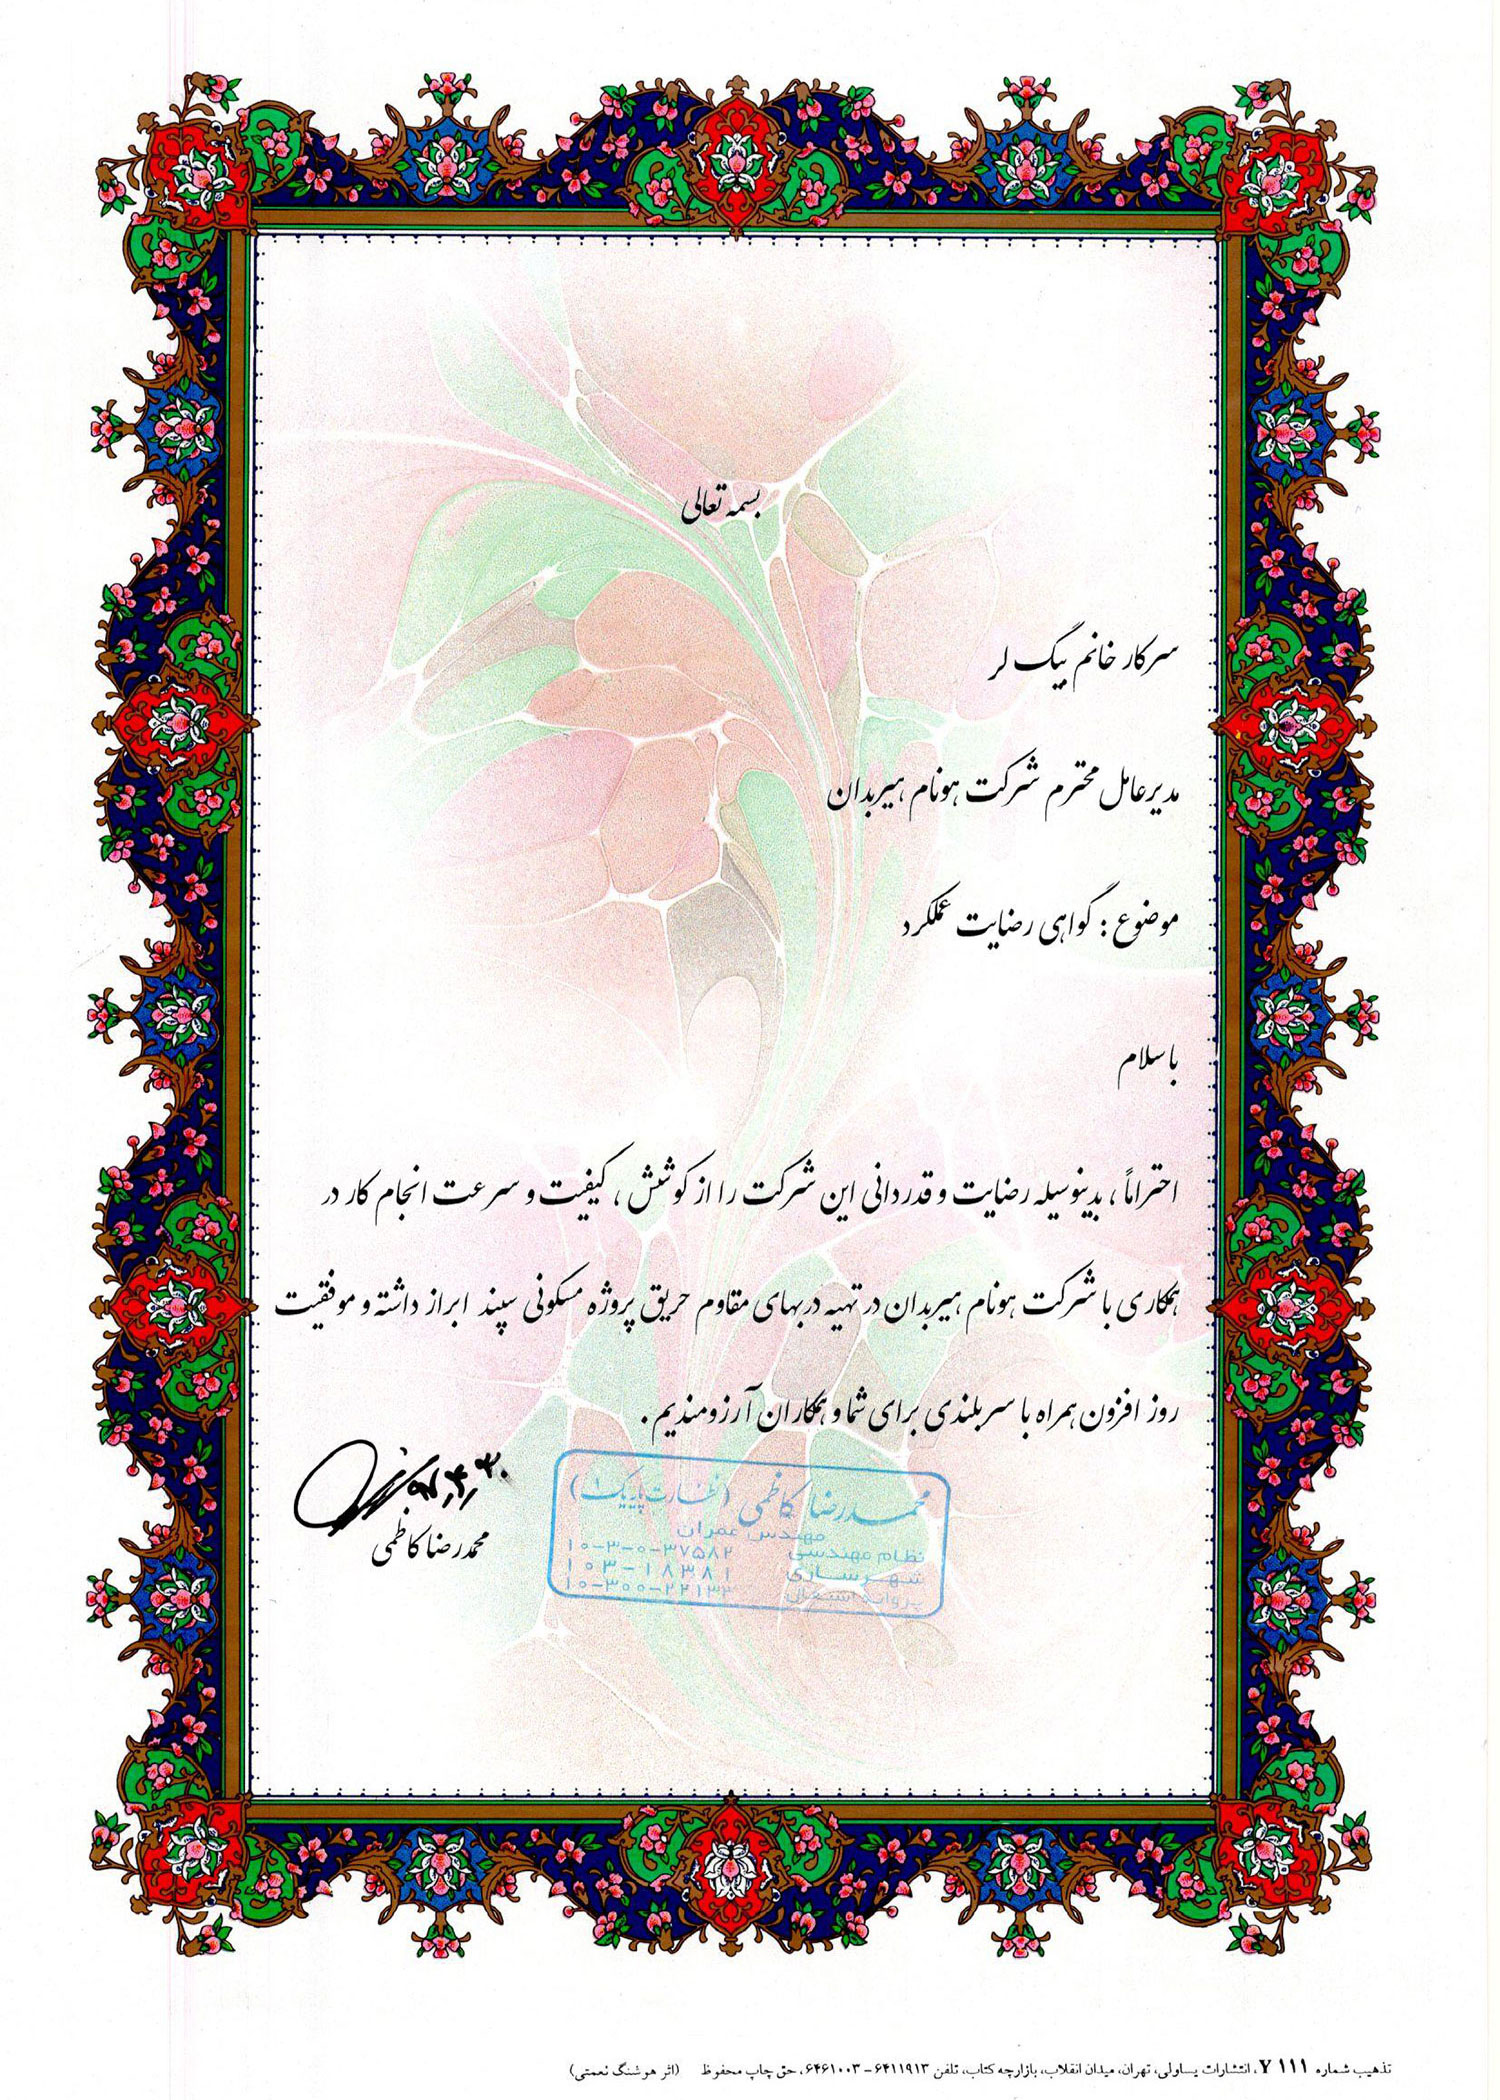 بسمه تعالی
سرکار خانم بیگ لر
مدیرعامل محترم شرکت هونام هیربدان
موضوع : گواهی رضایت عملکرد
باسلام
احتراماً ، بدینوسیله رضایت و قدردانی این شرکت را از کوشش ، کیفیت و سرعت انجام کار در
همکاری با شرکت هونام هیربدان در تهیه دربهای مقاوم حریق پروژه مسکونی سپند ابراز داشته و موفقیت
روز افزون همراه با سربلندی برای شما و همکاران آرزومندیم .
۹۷,۴,۳۰
محمدرضا کاظمی
محمدرضا کاظمی (نظارت پایه یک ۱)
مهندس عمران
نظام مهندسی ۱۰-۳-۰-۳۷۵۸۲
شهرسازی ۱۰۳-۱۸۳۸۱
پروانه اشتغال ۱۰-۳۰۰-۲۲۱۳۲
تذهیب شماره Y ۱۱۱، انتشارات یساولی، تهران، میدان انقلاب، بازارچه کتاب، تلفن ۶۴۱۱۹۱۳-۶۴۶۱۰۰۳، حق چاپ محفوظ (اثر هوشنگ نعمتی)